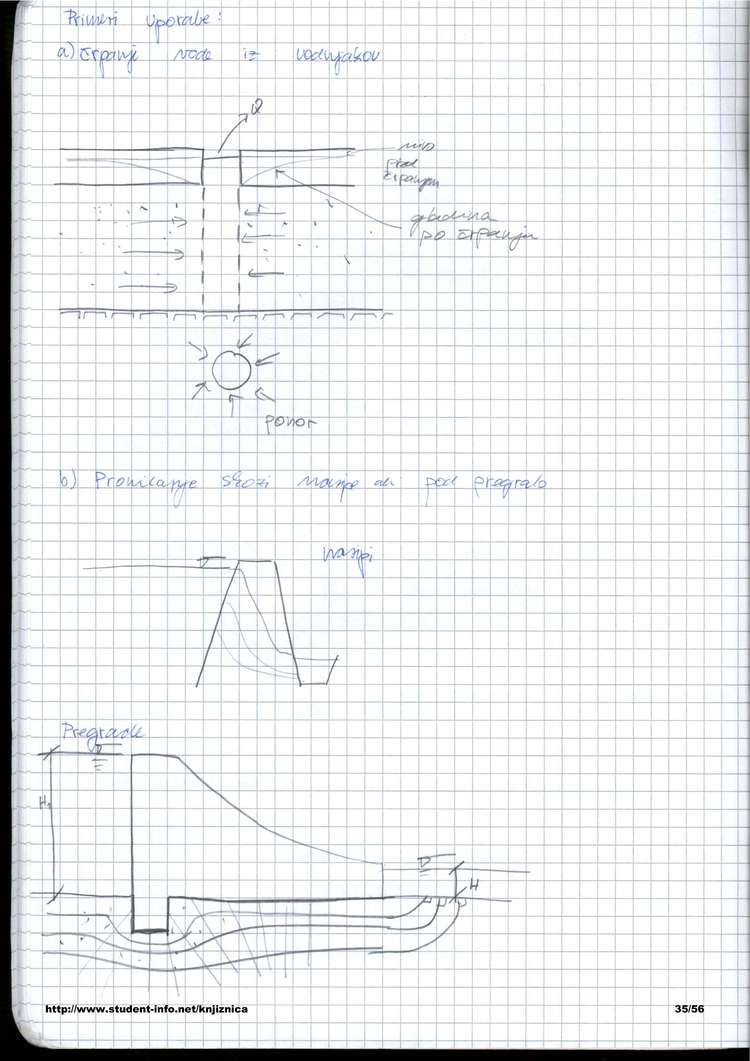 Primeri uporabe:
a) Črpanje vode iz vodnjakov
Q
nivo
pred
črpanjem
gladina
po črpanju
ponor
b) Pronicanje skozi nasipe ali pod pregrado
nasipi
Pregrade
H₁
H
http://www.student-info.net/knjiznica
35/56